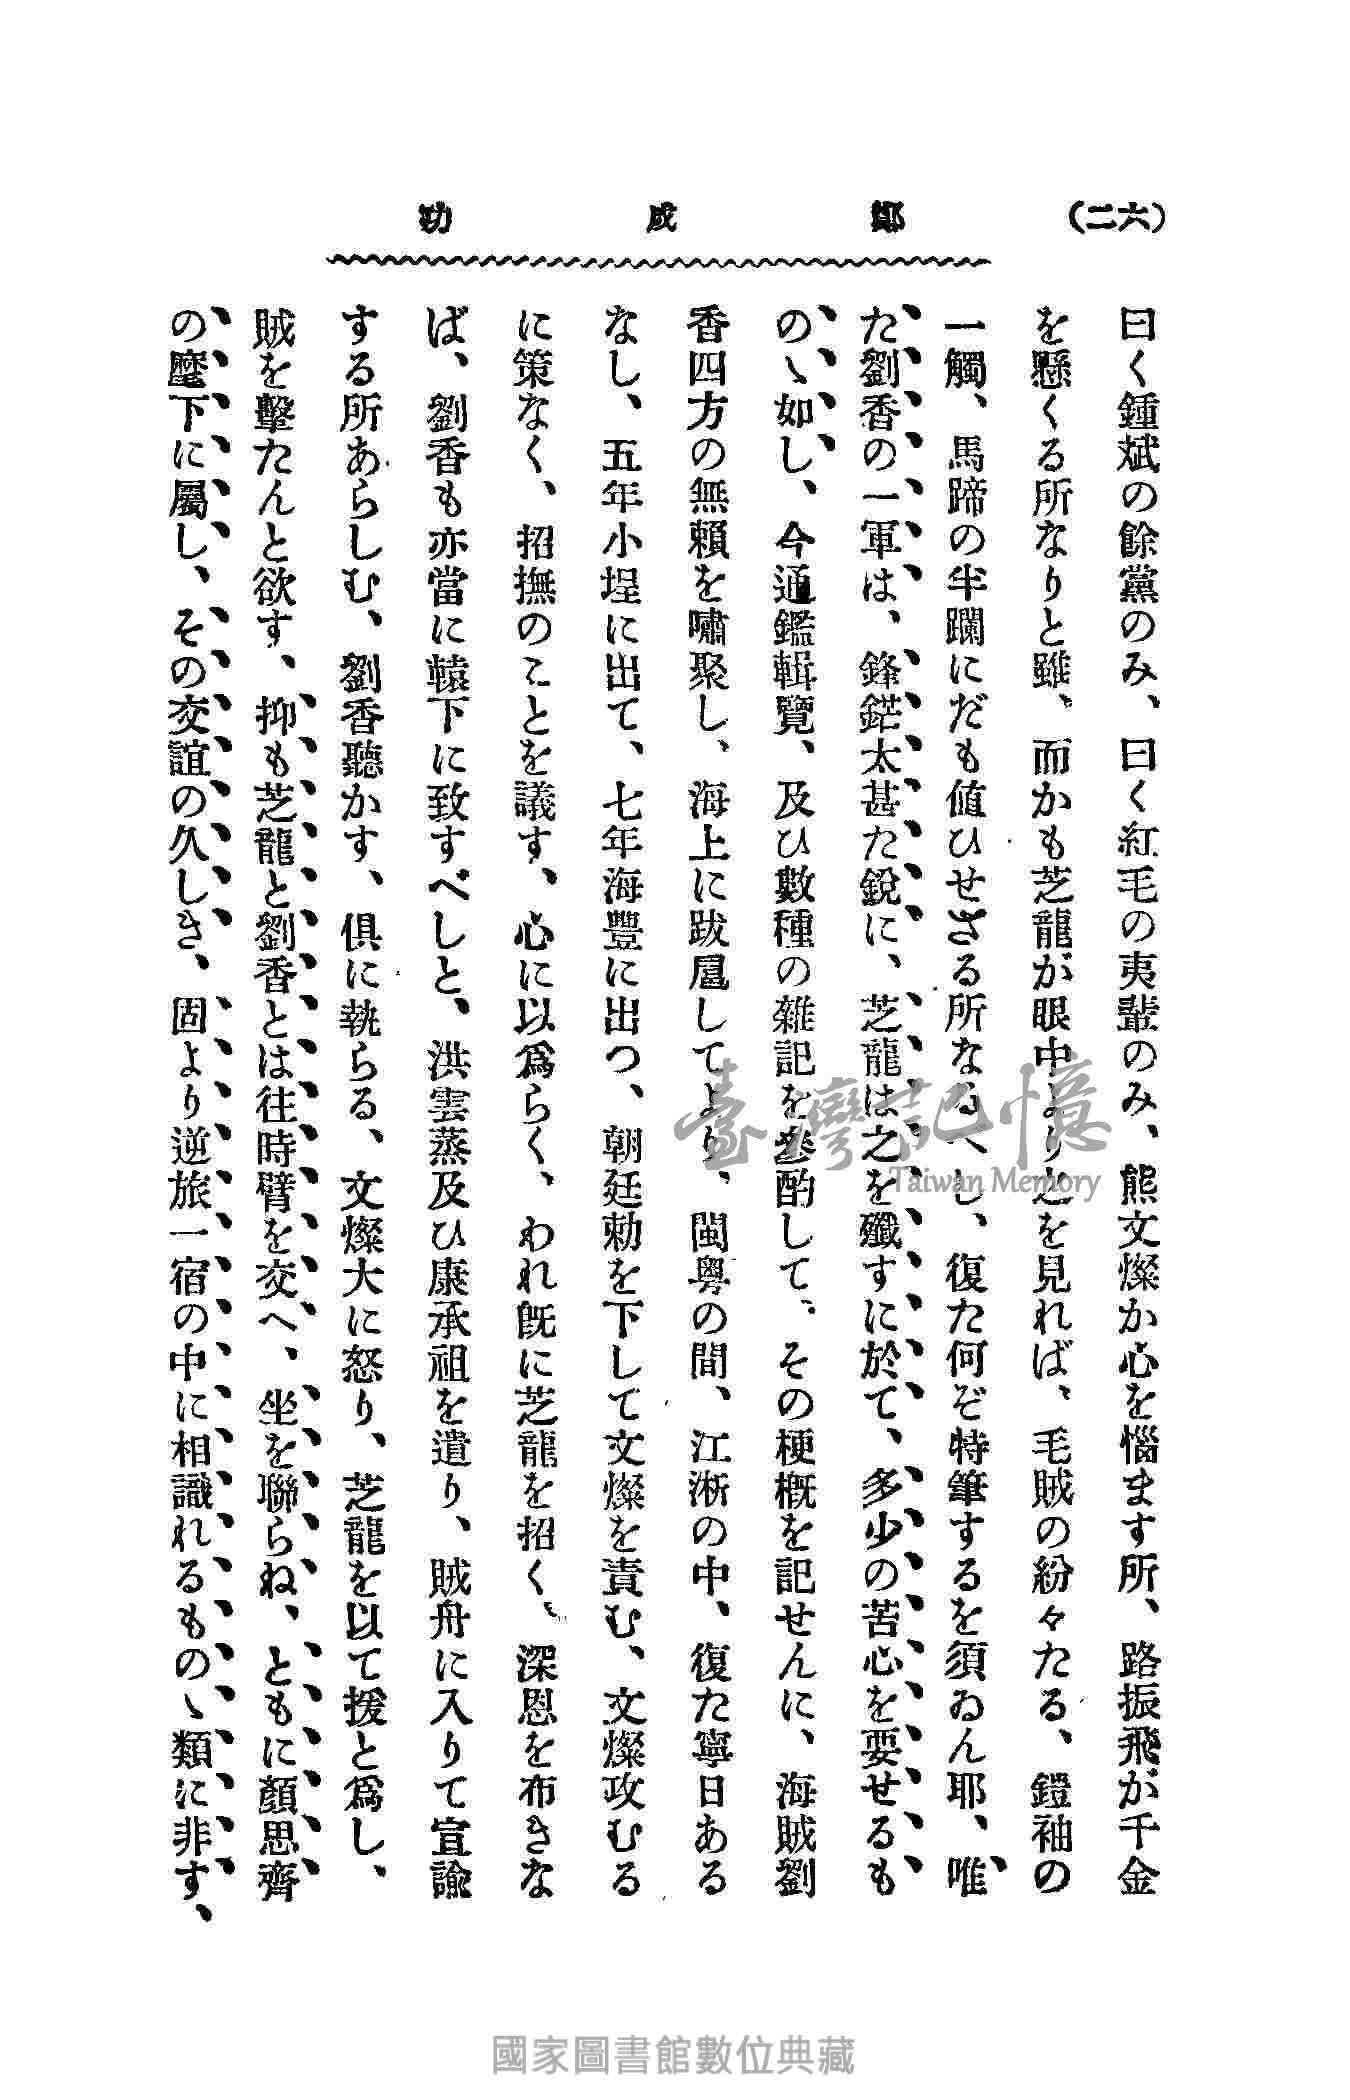 (二六)
鄭成功
曰く鍾斌の餘黨のみ、曰く紅毛の夷輩のみ、熊文燦か心を惱ます所、路振飛が千金
を懸くる所なりと雖、而かも芝龍が眼中より之を見れば、毛賊の紛々たる、鎧袖の
一觸、馬蹄の半躙にだも値ひせざる所なるべし、復た何ぞ特筆するを須ゐん耶、唯
た劉香の一軍は、鋒鋩太甚た銳に、芝龍は之を殲すに於て、多少の苦心を要せるも
のゝ如し、今通鑑輯覽、及ひ數種の雜記を參酌して、その梗概を記せんに、海賊劉
香四方の無賴を嘯聚し、海上に跋扈してより、閩粤の間、江淅の中、復た寧日ある
なし、五年小埕に出て、七年海豐に出つ、朝廷勅を下して文燦を責む、文燦政むる
に策なく、招撫のことを議す、心に以爲らく、われ旣に芝龍を招く、深恩を布きな
ば、劉香も亦當に轅下に致すべしと、洪雲蒸及ひ康承祖を遣り、賊舟に入りて宣諭
する所あらしむ、劉香聽かす、俱に執らる、文燦大に怒り、芝龍を以て援と爲し、
賊を擊たんと欲す、抑も芝龍と劉香とは往時臂を交へ、坐を聯らね、ともに顏思齊
の麾下に屬し、その交誼の久しき、固より逆旅一宿の中に相識れるものゝ類に非す、
臺灣記憶
Taiwan Memory
國家圖書館數位典藏